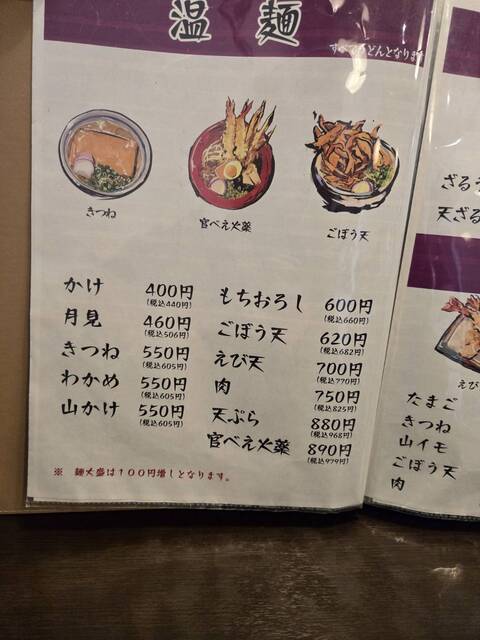 温麺
すべてうどんとなります
きつね
官べえ火薬
ごぼう天
かけ 400円
(税込440円)
月見 460円
(税込506円)
きつね 550円
(税込605円)
わかめ 550円
(税込605円)
山かけ 550円
(税込605円)
もちおろし 600円
(税込660円)
ごぼう天 620円
(税込682円)
えび天 700円
(税込770円)
肉 750円
(税込825円)
天ぷら 880円
(税込968円)
官べえ火薬 890円
(税込979円)
※ 麺大盛は100円増しとなります。
ざるう
天ざる
えび
たまご
きつね
山イモ
ごぼう天
肉